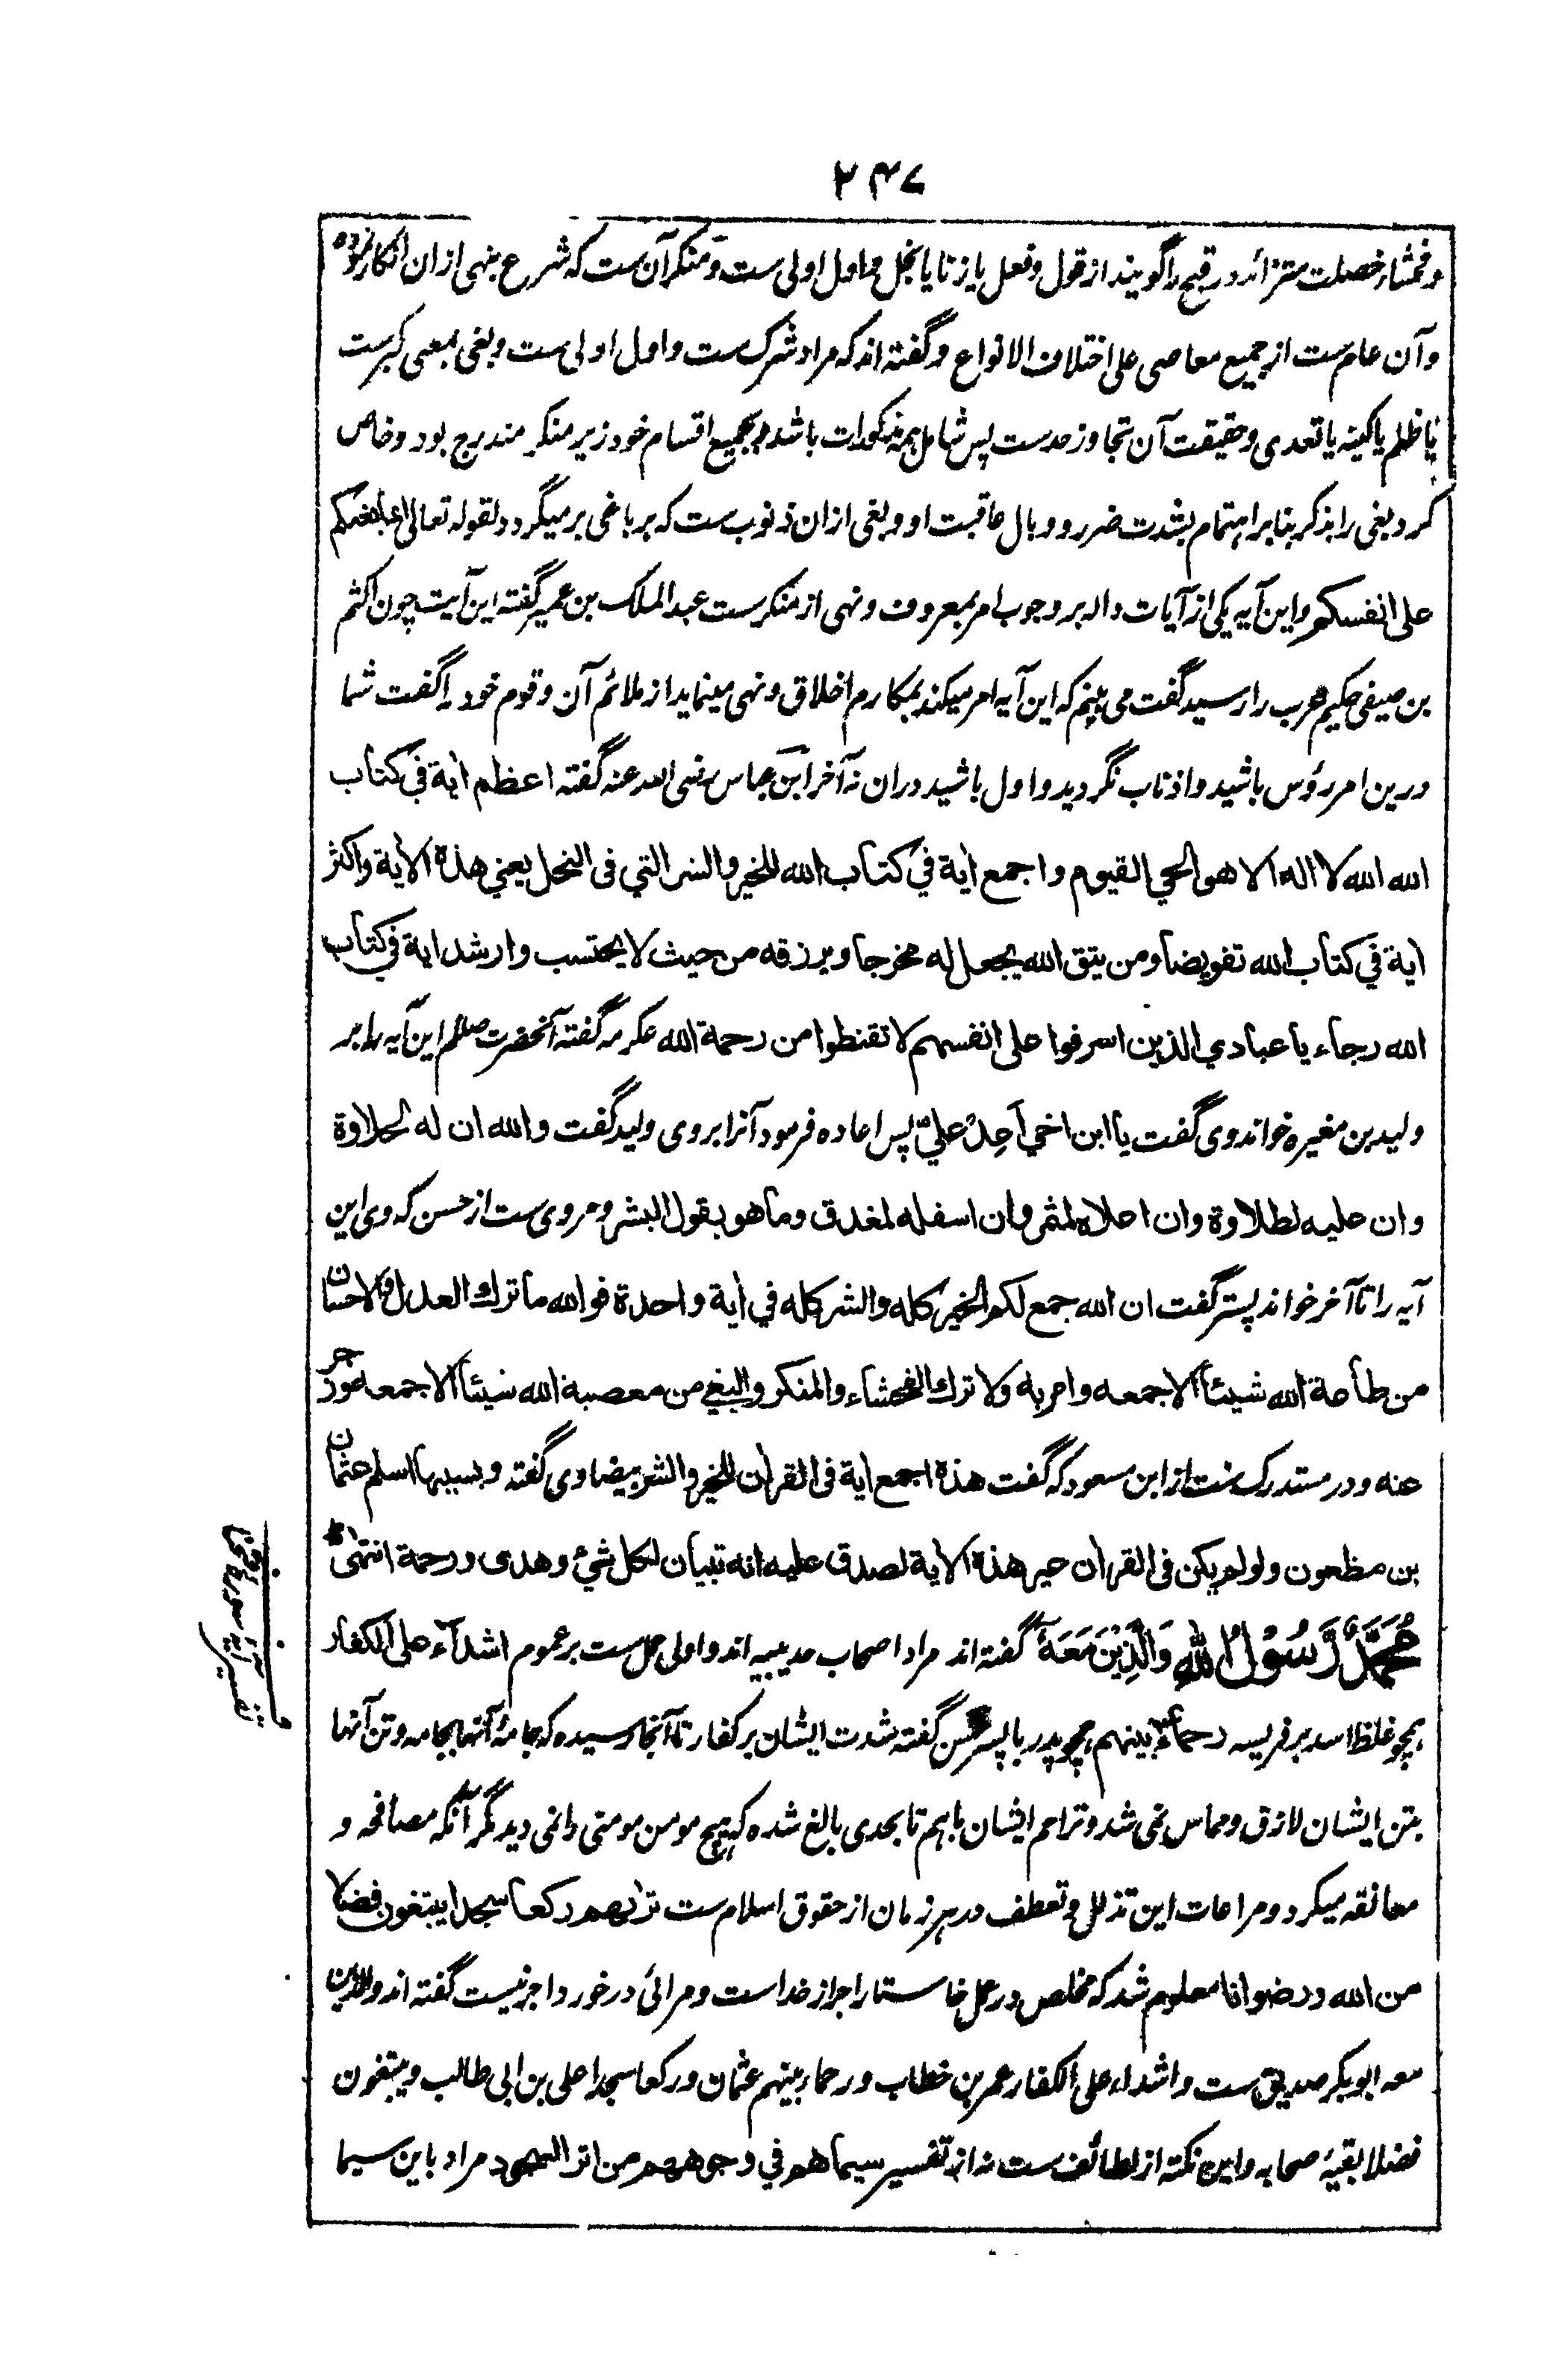 ۲۴۷
و فحشاء خصلت متزائد در قبح را گویند از قول و فعل یا زنا یا بخل و اول اولی ست و منکر آن ست که شرع بنهی ازان انکار نموده
و آن عام ست از جمیع معاصی علی اختلاف الانواع و گفته اند که مراد شرک ست و اول اولی ست و بغی بمعنی کبرست
یا ظلم یا کینه یا تعدی و حقیقت آن تجاوز حدست پس شامل همه مذکورات باشد و بجمیع اقسام خود زیر منکر مندرج بود و خاص
کرد بغی را بذکر بنا بر اهتمام بشدت ضرر و وبال عاقبت او و بغی ازان ذنوب ست که بر باغی بر میگردد لقوله تعالی انما بغیکم
علی انفسکم و این آیه یکی از آیات داله بر وجوب امر بمعروف و نهی از منکرست عبد الملک بن عمیر گفته این آیت چون اکثم
بن صیفی حکیم عرب را رسید گفت می بینم که این آیه امر میکند بمکارم اخلاق و نهی مینماید از ملائم آن و قوم خود را گفت شما
درین امر رؤس باشید و اذناب نگردید و اول باشید دران نه آخر ابن عباس رضی الله عنه گفته اعظم اٰیة في كتاب
الله الله لا اله الا هو الحي القيوم و اجمع اٰية في كتاب الله للخير والشر التي فى النحل يعني هذه الاٰية واكثر
اية في كتاب الله تفويضا ومن يتق الله يجعل له مخرجا ويرزقه من حيث لا يحتسب وارشد اية في كتاب
الله رجاء يا عبادي الذين اسرفوا على انفسهم لا تقنطوا من رحمة الله عکرمه گفته آنحضرت صللم این آیه را بر
ولید بن مغیره خواند وی گفت يا ابن اخي اَعِدْ عليّ پس اعاده فرمود آنرا بروی ولید گفت والله ان له لحلاوة
وان عليه لطلاوة وان اعلاه لمثمر وان اسفله لمغدق وما هو بقول البشر و مروی ست از حسن که وی این
آیه را تا آخر خواند پستر گفت ان الله جمع لكم الخير كله والشر كله في اٰية واحدة فوالله ما ترك العدل والاحسان
من طاعة الله شيئاً الا جمعه وامر به ولا ترك الفحشاء والمنكر والبغي من معصية الله شيئاً الا جمعه وزجر
عنه و در مستدرک ست از ابن مسعود که گفت هذه اجمع اية فى القراٰن للخير والشر بیضاوی گفته وبسببها اسلم عثمان
بن مظعون ولو لم يكن فى القراٰن غير هذه الاٰية لصدق عليه انه تبيان لكل شئ وهدى ورحمة انتهى
مُحَمَّدٌ رَّسُوْلُ اللهِ وَالَّذِيْنَ مَعَهٗ گفته اند مراد اصحاب حدیبیه اند و اولی حمل ست بر عموم اشداء على الكفار
همچو غلظ اسد بر فریسه رحماء بينهم همچو پدر با پسر حسن گفته شدت ایشان بر کفار تا آنجا رسیده که جامۀ آنها بجامه و تن آنها
بتن ایشان لازق و مماس نمی شد و تراحم ایشان باهم تا بحدی بالغ شده که هیچ مومن مومنی را نمی دید مگر آنکه مصافحه و
معانقه میکرد و مراعات این تذلل و تعطف در هر زمان از حقوق اسلام ست تراٰيهم ركعا سجدا يبتغون فضلا
من الله ورضوانا معلوم شد که مخلص در عمل خاستار اجر از خداست و مرائی درخورد اجر نیست گفته اند والذین
معه ابوبکر صدیق ست و اشداء علی الکفار عمر بن خطاب و رحماء بینهم عثمان و رکعا سجدا علی بن ابی طالب و یبتغون
فضلا بقیۀ صحابه و این نکته از لطائف ست نه از تفسیر سيماهم في وجوههم من اثر السجود مراد باین سیما
تفسیر آیۀ سورۀ فتح